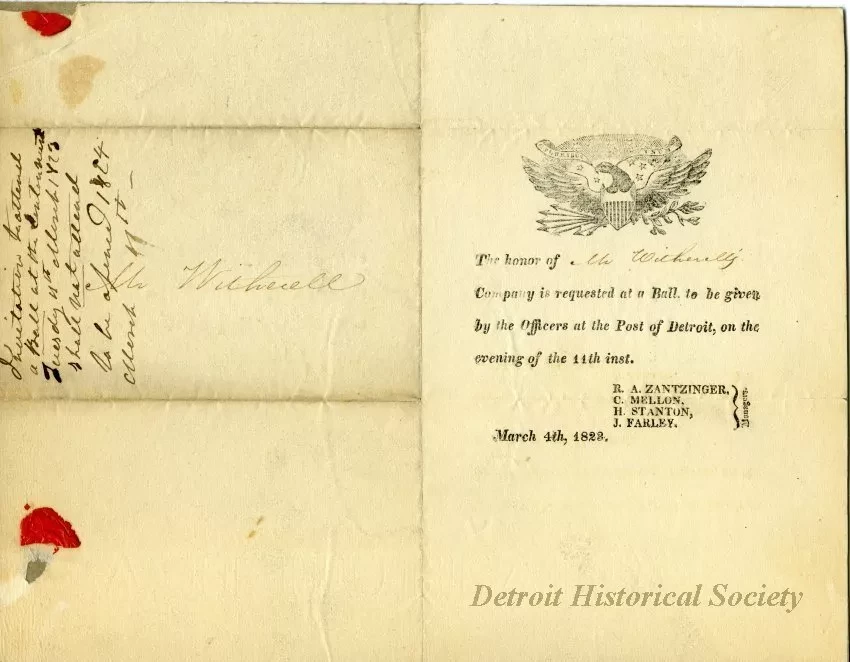 Invitation to attend
a Ball at the
Tuesday 11th March 1823
shall not attend
to be opened 1824
March 11th —
Mr Witherell
The honor of Mr Witherell's
Company is requested at a Ball, to be given
by the Officers at the Post of Detroit, on the
evening of the 11th inst.
R. A. ZANTZINGER,
C. MELLON,
H. STANTON,
J. FARLEY.
Managers.
March 4th, 1823.
Detroit Historical Society